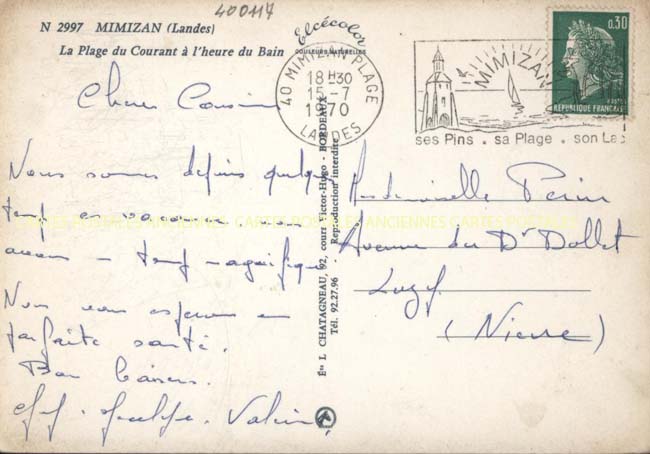 400117
N 2997 MIMIZAN (Landes)
La Plage du Courant à l'heure du Bain
Elcécolor
COULEURS NATURELLES
40 MIMIZAN PLAGE
18H30
15-7
1970
LANDES
MIMIZAN
ses Pins . sa Plage . son Lac
0,30
POSTES
REPUBLIQUE FRANÇAISE
Chers Cousins
Nous sommes depuis quelque
temps en vacances nous
avons un temps magnifique
Nous vous espérons en
parfaite santé.
Bons baisers.
Valérie
Mademoiselle Perin
Avenue du Dr Dollet
Luzy
(Nievre)
Éts L. CHATAGNEAU, 92, cours Victor-Hugo - BORDEAUX
Tél. 92.27.96 Reproduction interdite
CARTES POSTALES ANCIENNES CARTES POSTALES ANCIENNES CARTES POSTALES